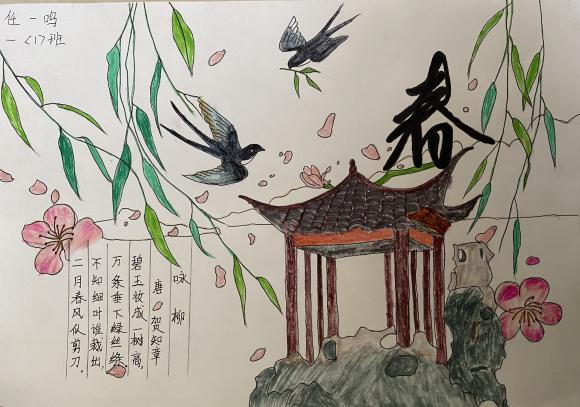 任一鸣
一<1>班
春
咏柳
唐 贺知章
碧玉妆成一树高,
万条垂下绿丝绦。
不知细叶谁裁出,
二月春风似剪刀。